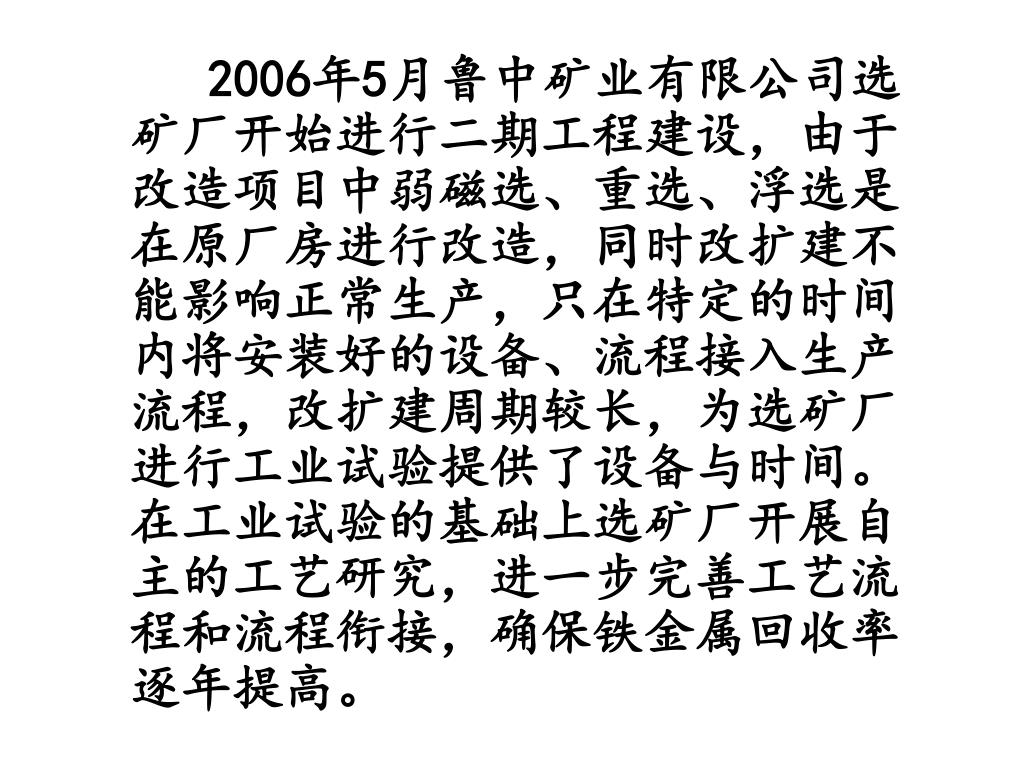 2006年5月鲁中矿业有限公司选
矿厂开始进行二期工程建设，由于
改造项目中弱磁选、重选、浮选是
在原厂房进行改造，同时改扩建不
能影响正常生产，只在特定的时间
内将安装好的设备、流程接入生产
流程，改扩建周期较长，为选矿厂
进行工业试验提供了设备与时间。
在工业试验的基础上选矿厂开展自
主的工艺研究，进一步完善工艺流
程和流程衔接，确保铁金属回收率
逐年提高。